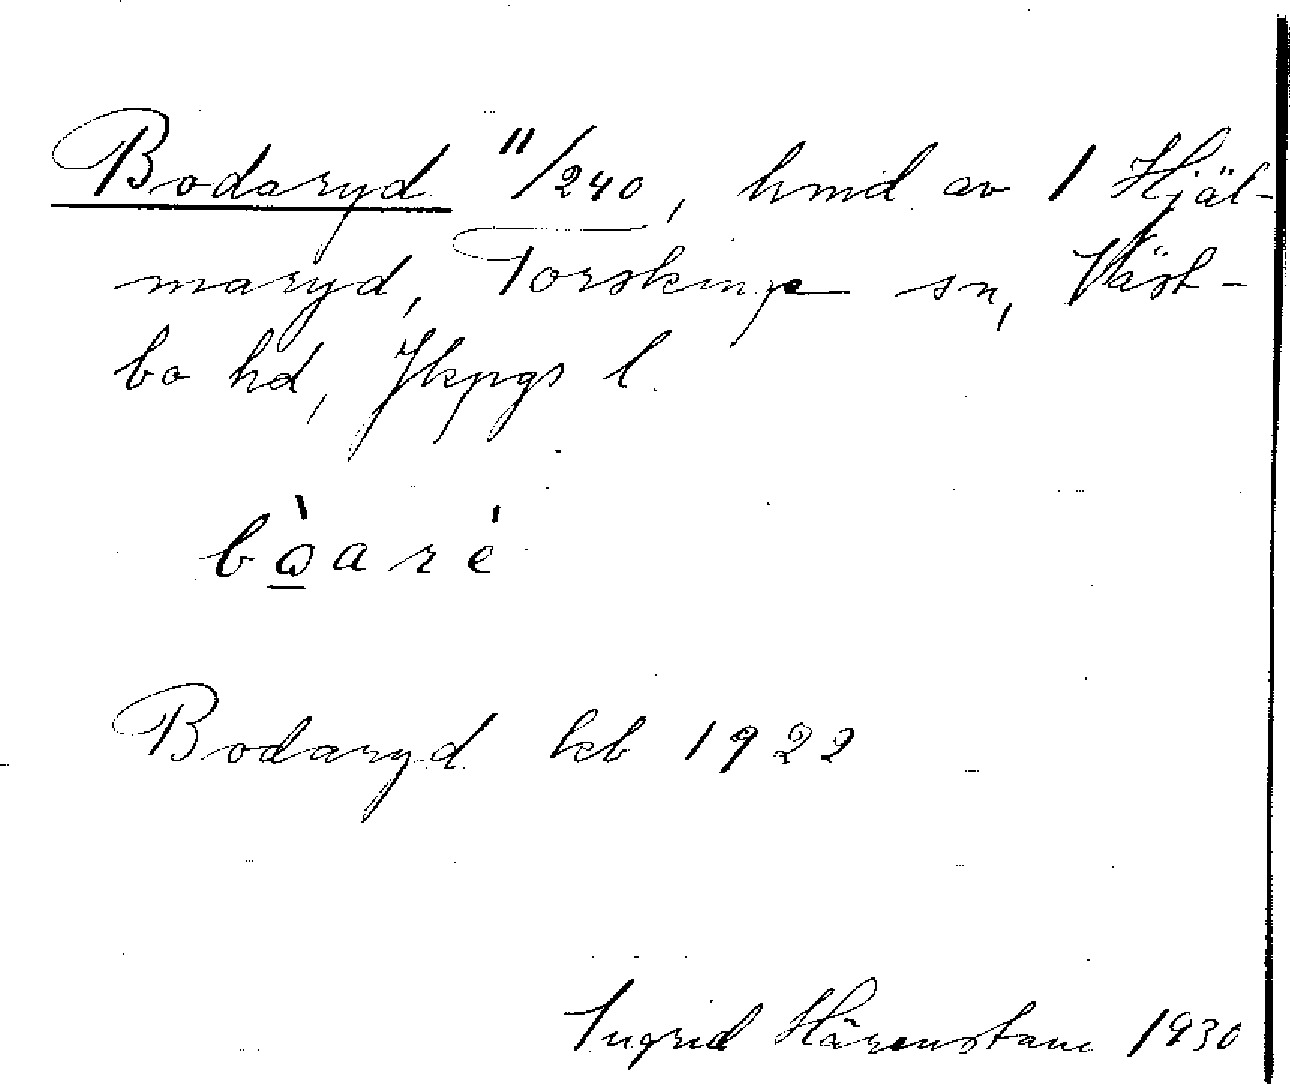 Bodaryd 11/240, hmd av 1 Hjäl-
maryd, Torskinge sn, Väst-
bo hd, Jkpgs l.
bò̲aré
Bodaryd kb 1922
Ingrid Härenstam 1930